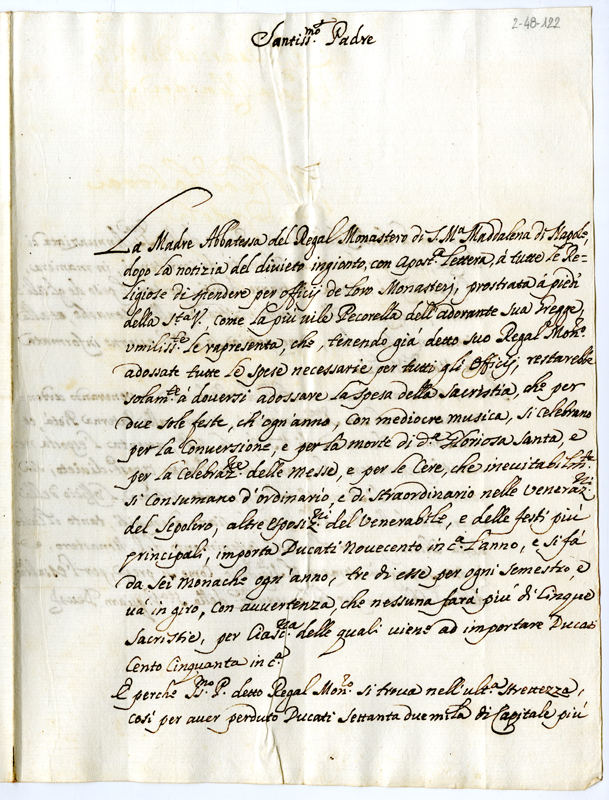 2-48-122
Santiss.mo Padre
La Madre Abbatessa del Regal Monastero di S. M.a Maddalena di Napole,
dopo la notizia del divieto ingionto, con Apost.a lettera, à tutte le Re-
ligiose di spendere per officij de loro Monasterj, prostrata à piedi
della S.tà V. come la più vile Pecorella dell'adorante sua Gregge,
umiliss.te Le rapresenta, che, tenendo già detto suo Regal Mon.o
adossate tutte le spese necessarie per tutti gli Officij, restarebbe
solam.te à doversi adossare la spesa della Sacristia, che per
due sole feste, ch'ogn'anno, con mediocre musica, si celebrano
per la Conversione, e per la morte di d.a Gloriosa Santa, e
per la Celebraz.ne delle messe, e per le Cere, che inevitabilm.te
si consumano d'ordinario, e di straordinario nelle Veneraz.ni
del Sepolcro, altre esposiz.ni del Venerabile, e delle festi più
principali, importa Ducati Novecento in c.a l'anno, e si fà
da sei monache ogn'anno, tre di esse per ogni semestre, e
và in giro, con avvertenza, che nessuna farà più di Cinque
Sacristie, per ciasc.na delle quali viene ad importare Ducati
Cento Cinquanta in c.a
E perche B.mo P. detto Regal Mon.ro si trova nell'ult.a strettezza,
così per aver perduto Ducati settanta due mila di Capitale più